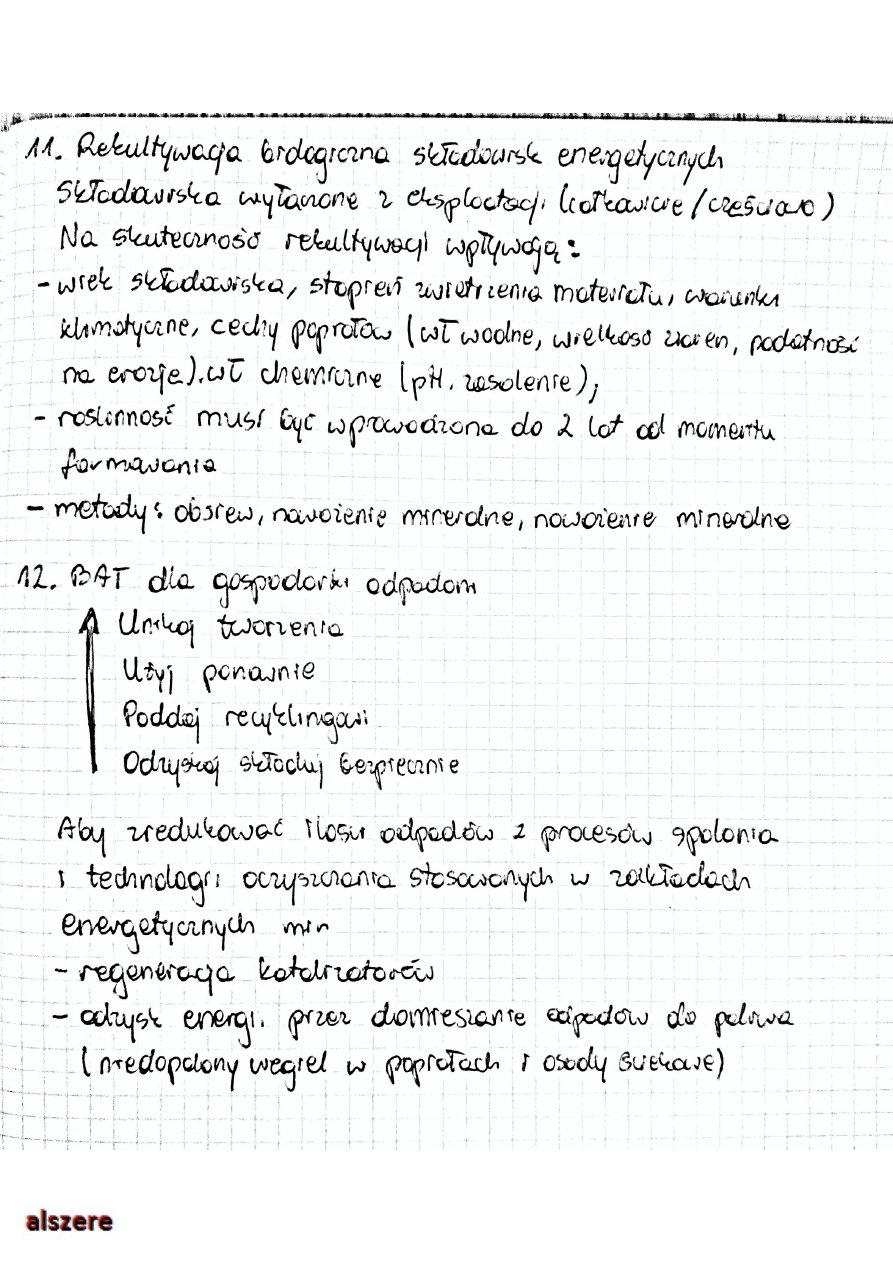 11. Rekultywacja biologiczna składowisk energetycznych
Składowiska wyłączone z eksploatacji (całkowicie/częściowo)
Na skuteczność rekultywacji wpływają:
- wiek składowiska, stopień zwietrzenia materiału, warunki
klimatyczne, cechy popiołów (wł wodne, wielkość ziaren, podatność
na erozje), wł chemiczne (pH, zasolenie);
- roślinność musi być wprowadzona do 2 lat od momentu
formowania
- metody: obsiew, nawożenie mineralne, nawożenie mineralne
12. BAT dla gospodarki odpadami
Unikaj tworzenia
Użyj ponownie
Poddaj recyklingowi
Odzyskaj składuj bezpiecznie
Aby zredukować ilość odpadów z procesów spalania
i technologii oczyszczania stosowanych w zakładach
energetycznych min
- regeneracja katalizatorów
- odzysk energi. przez domieszanie odpadów do paliwa
(niedopalony węgiel w popiołach i osady ściekowe)
alszere